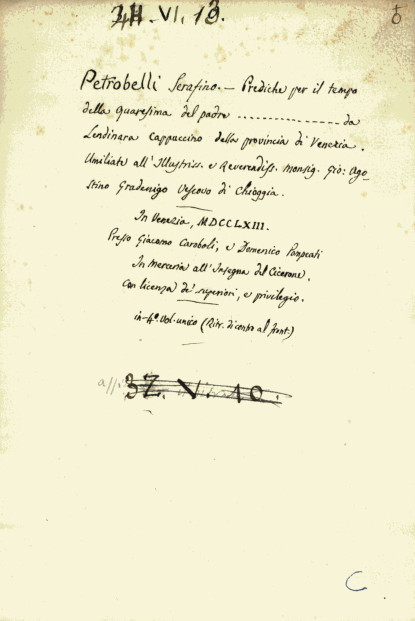 34-VI.13.
Petrobelli Serafino. — Prediche per il tempo
della quaresima del padre ................ da
Lendinara cappuccino della provincia di Venezia.
Umiliate all' Illustriss. e Reverendiss. Monsig. Gio: Ago-
stino Gradenigo Vescovo di Chioggia.
In Venezia, MDCCLXIII.
Presso Giacomo Caroboli, e Domenico Pompeati
In Merceria all' Insegna del Cicerone,
con licenza de' superiori, e privilegio.
in-4º. Vol. unico (Ritr. di contro al front.)
32. V. 10.
C